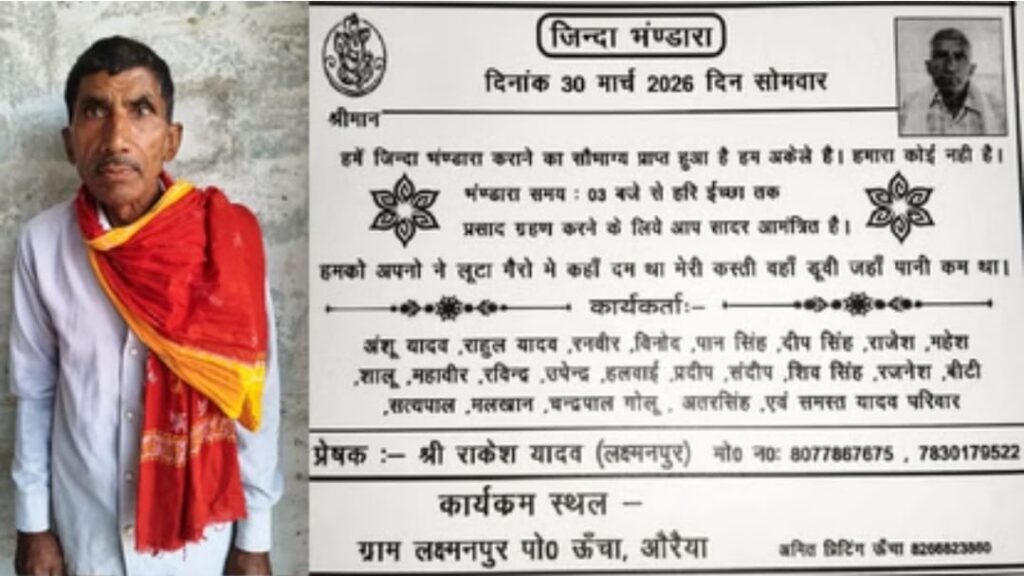 जिन्दा भंण्डारा
दिनांक 30 मार्च 2026 दिन सोमवार
श्रीमान
हमें जिन्दा भंण्डारा कराने का सौभाग्य प्राप्त हुआ है हम अकेले है। हमारा कोई नही है।
भंण्डारा समय : 03 बजे से हरि ईच्छा तक
प्रसाद ग्रहण करने के लिये आप सादर आमंत्रित है।
हमको अपनो ने लूटा गैरो मे कहाँ दम था मेरी कस्ती वहाँ डूवी जहाँ पानी कम था।
कार्यकर्ताः–
अंशू यादव ,राहुल यादव ,रनवीर ,विनोद ,पान सिंह ,दीप सिंह ,राजेश ,महेश
,शालू ,महावीर ,रविन्द्र ,उपेन्द्र ,हलवाई ,प्रदीप ,संदीप ,शिव सिंह ,रजनेश ,बीटी
,सत्यपाल ,मलखान ,चन्द्रपाल गोलू , अतरसिंह ,एवं समस्त यादव परिवार
प्रेषक :– श्री राकेश यादव (लक्ष्मनपुर) मो0 न0: 8077867675 , 7830179522
कार्यकम स्थल –
ग्राम लक्ष्मनपुर पो0 ऊँचा, औरैया
प्रिटिंग ऊँचा